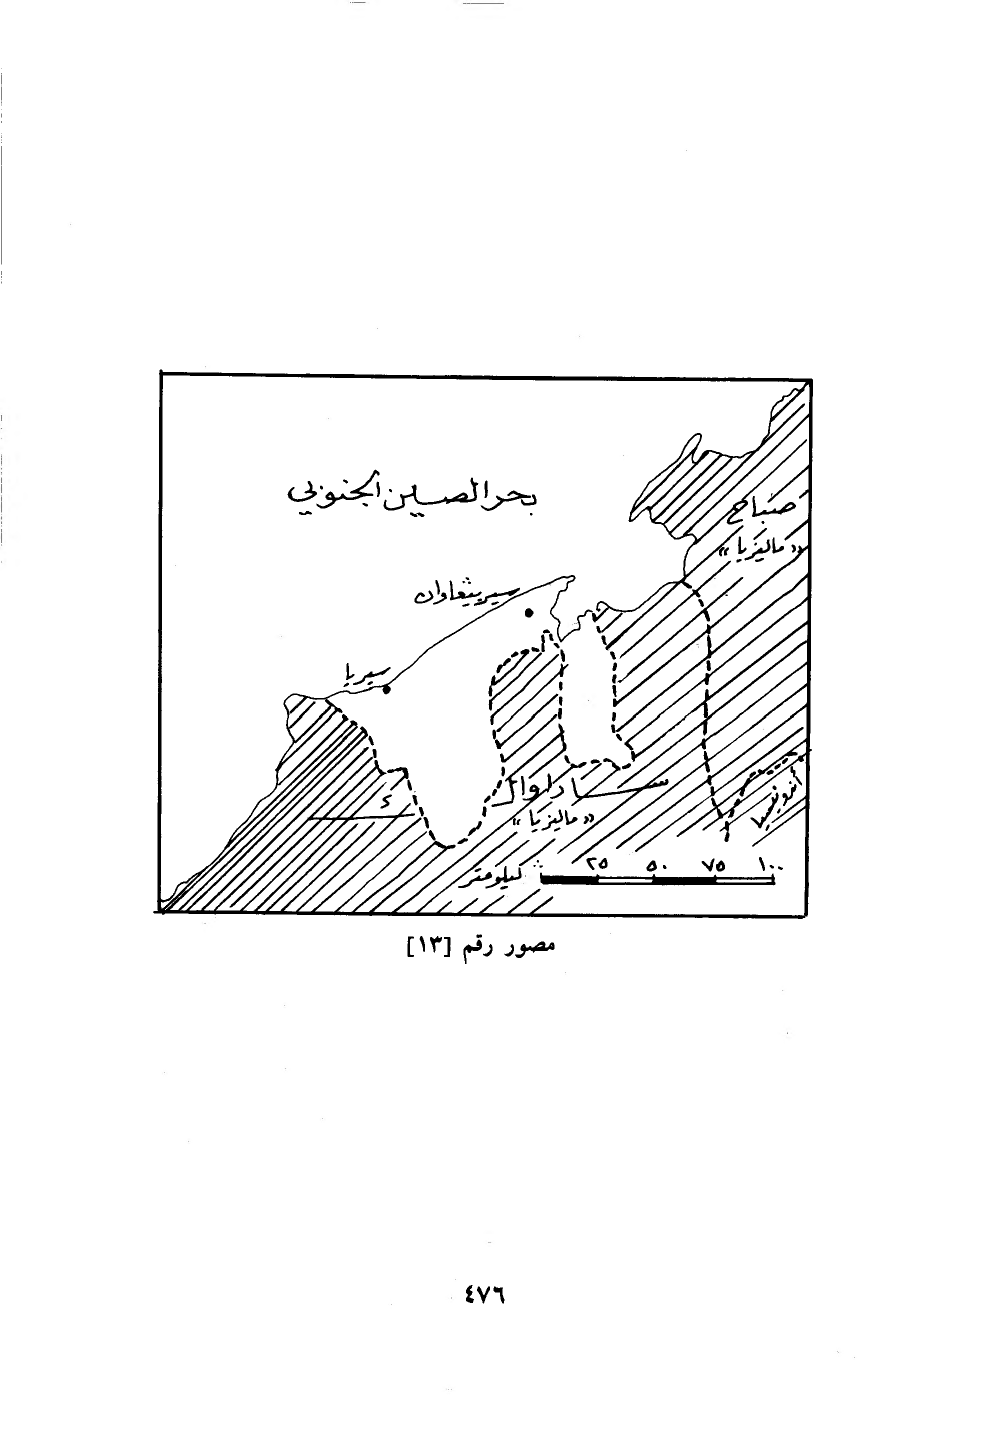 بحر الصين الجنوبي
صباح
«ماليزيا»
سيريبثغاوان
سيريا
ساراواك
«ماليزيا»
أندونيسيا
كيلومتر ٢٥ ٥٠ ٧٥ ١٠٠
مصور رقم [١٣]
٤٧٦